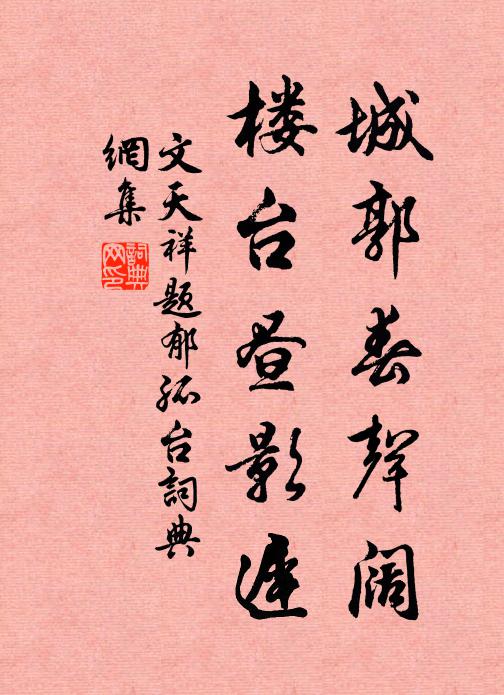 城郭春聲阔
楼台昼影遲
文天祥题郁孤台詞典
網集
詞典
网印